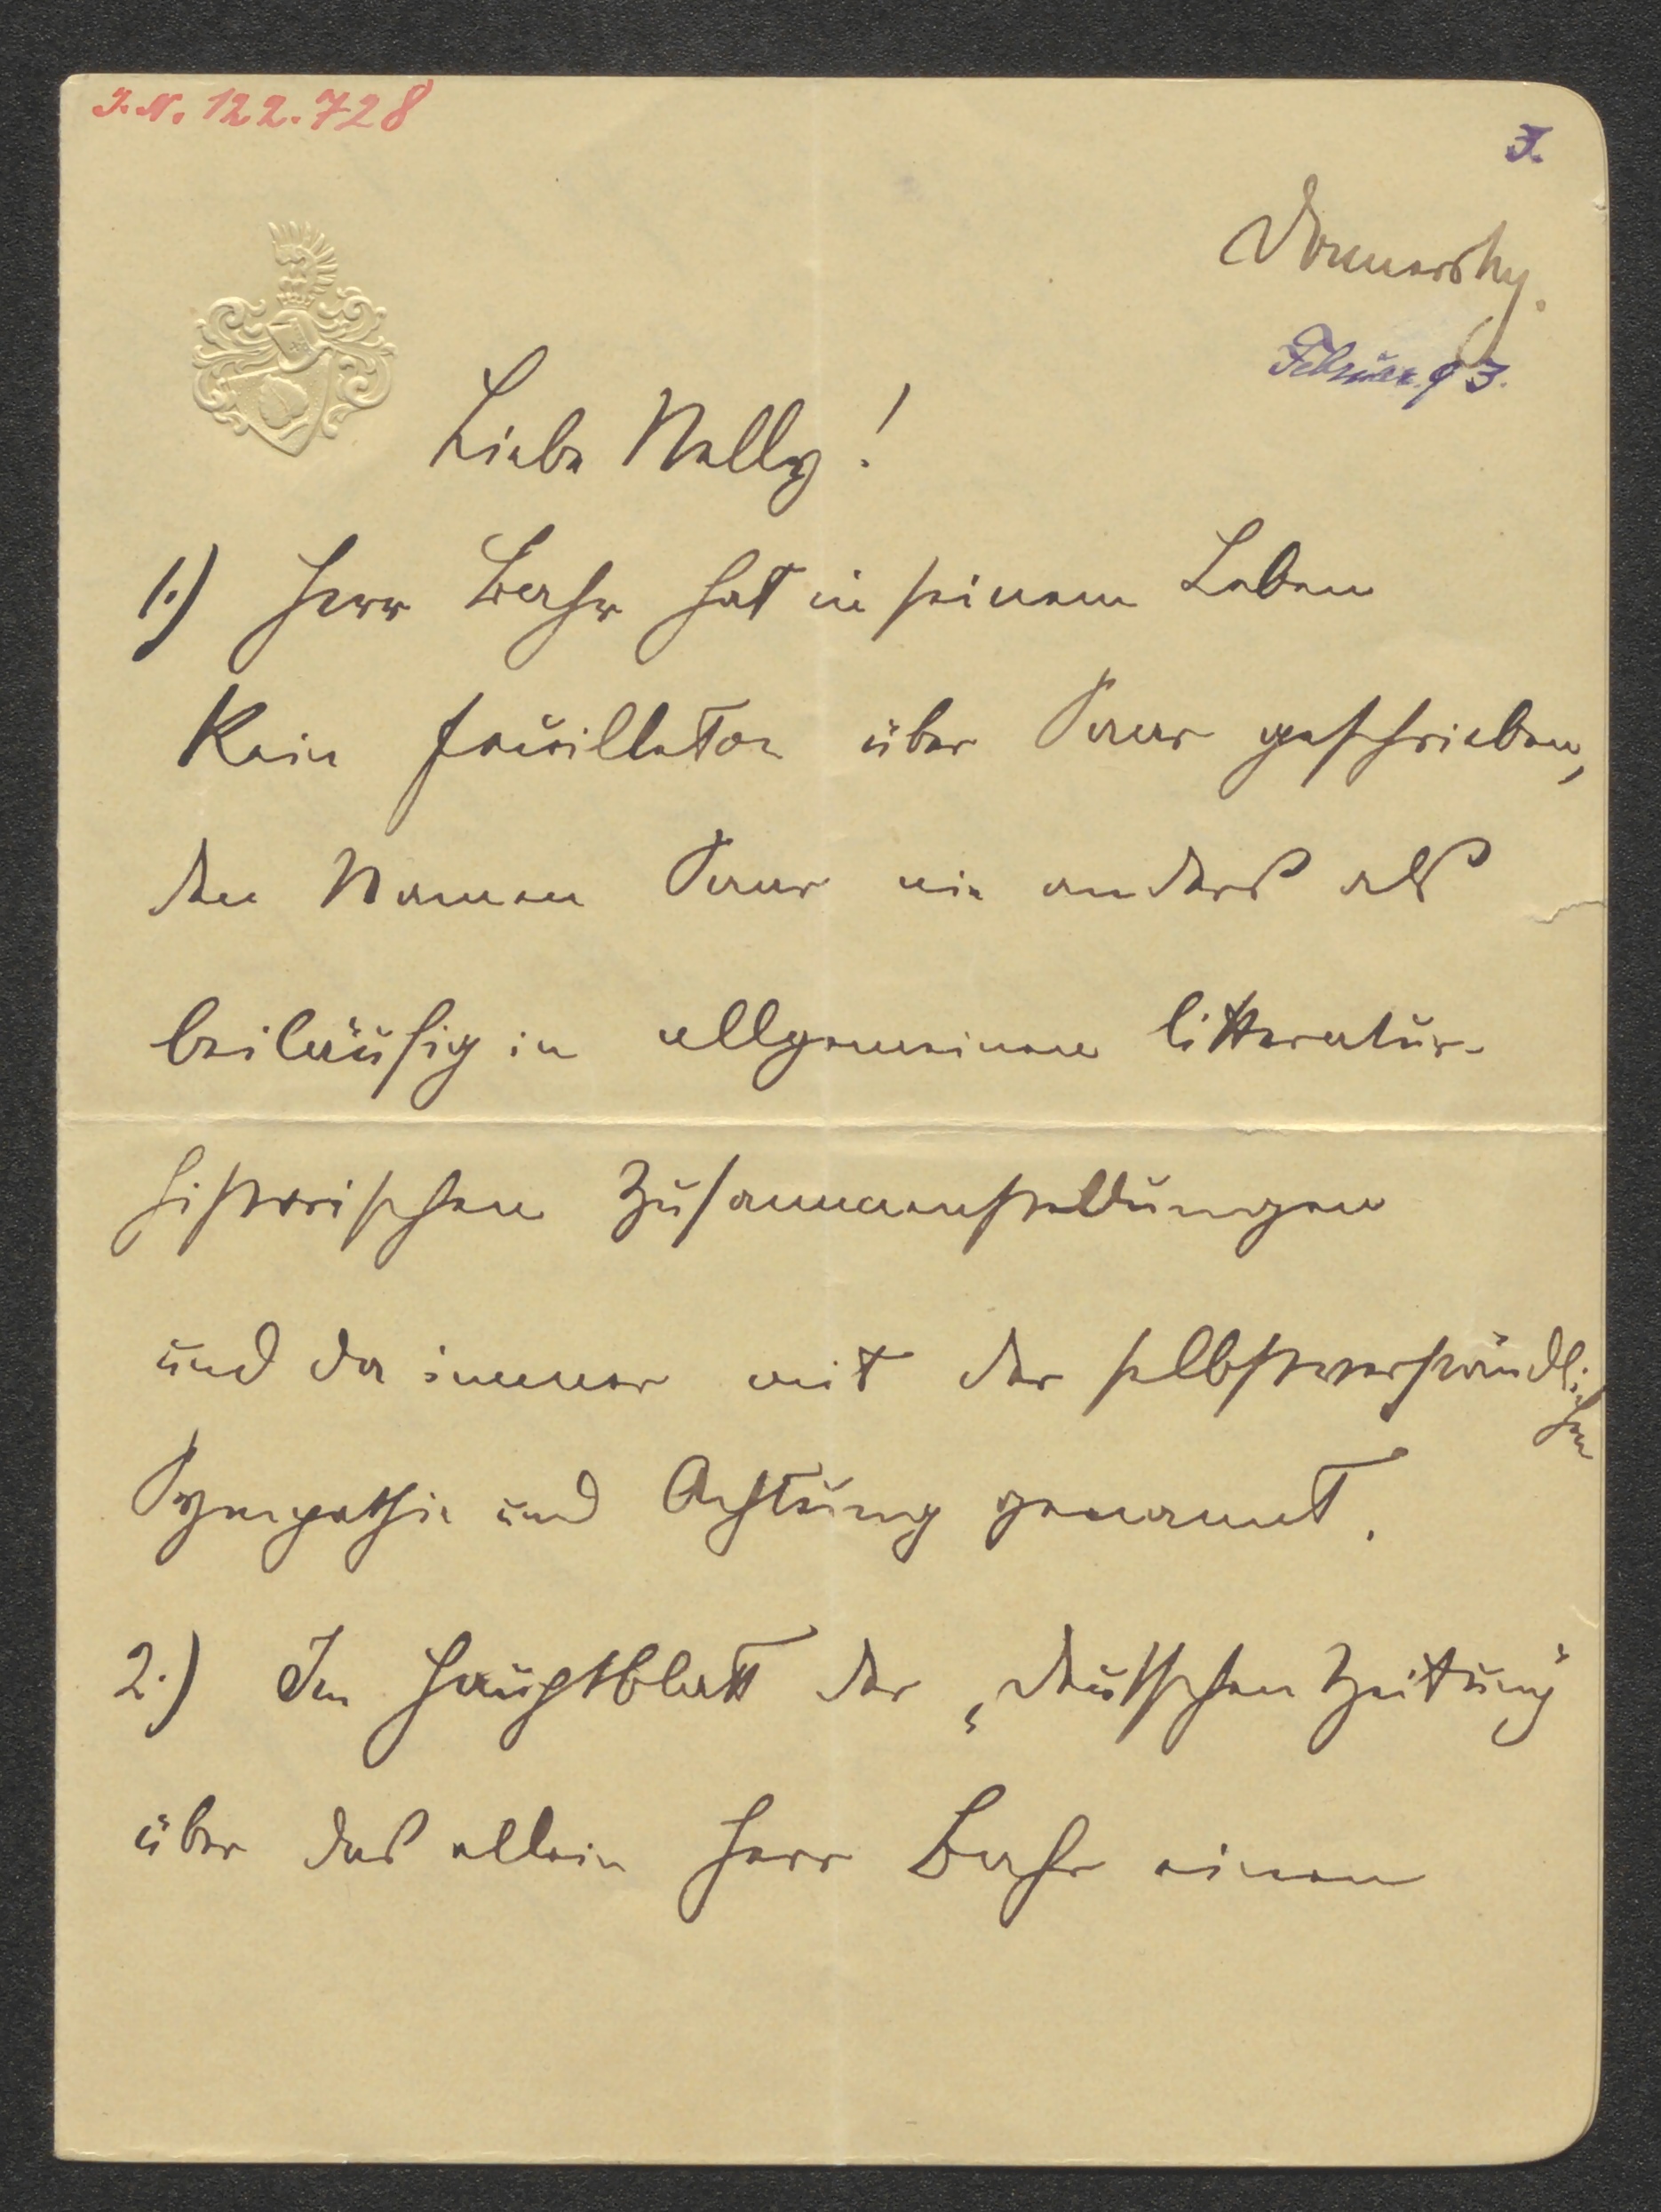 I. N. 122.728
I.
Donnerstag.
Februar 93.
Liebe Nelly!
1.) Herr Bahr hat in seinem Leben
kein Feuilleton über Saar geschrieben,
den Namen Saar nie anders als
beiläufig in allgemeinen litteratur-
historischen Zusammenstellungen
und da immer mit der selbstverständlichen
Sympathie und Achtung genannt.
2.) Im Hauptblatt der „deutschen Zeitung"
über das allein Herr Bahr einen